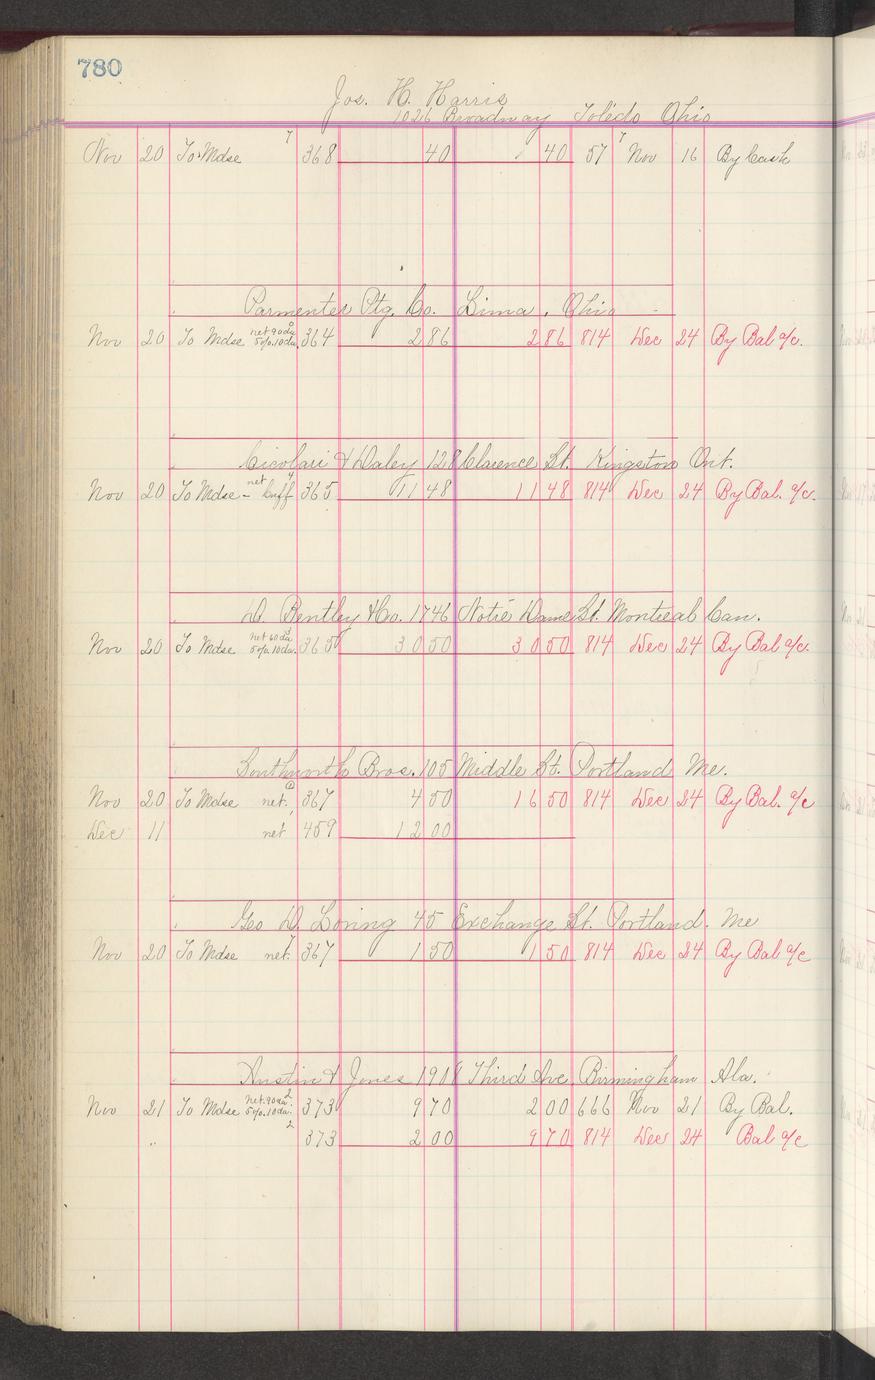 780
Jos. H. Harris
1026 Broadway Toledo Ohio
Nov 20 To Mdse 7 368 40 40 57 7 Nov 16 By Cash
Parmenter Ptg. Co. Lima, Ohio
Nov 20 To Mdse net 90 da 5% 10 da. 364 2 86 2 86 814 Dec 24 By Bal a/c.
& Daley 128 Clarence St. Kingston Ont.
Nov 20 To Mdse - net 365 11 48 11 48 814 Dec 24 By Bal. a/c.
D. Bentley & Co. 1746 Notre Dame St. Montreal Can.
Nov 20 To Mdse net 60 da 5% 10 da. 365 30 50 30 50 814 Dec 24 By Bal a/c.
Southworth Bros. 105 Middle St. Portland Me.
Nov 20 To Mdse net. 367 4 50 16 50 814 Dec 24 By Bal. a/c
Dec 11 net 459 12 00
Geo D. Loring 45 Exchange St. Portland. Me
Nov 20 To Mdse net. 367 1 50 1 50 814 Dec 24 By Bal a/c
Austin & Jones 1908 Third Ave. Birmingham Ala.
Nov 21 To Mdse net 90 da. 5% 10 da. 2 373 9 70 2 00 666 Nov 21 By Bal.
" 2 373 2 00 9 70 814 Dec 24 Bal a/c